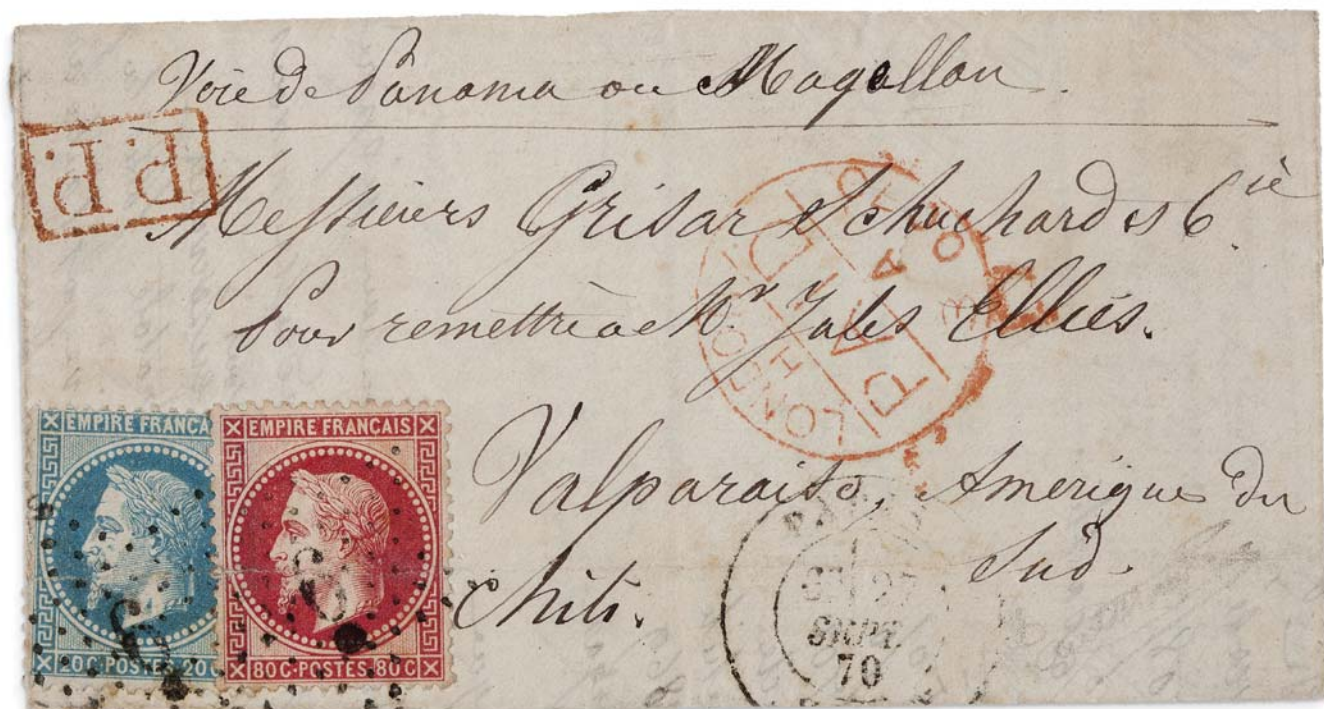 Voie de Panama ou Magellan.
P.P.
Messieurs Grisar Schuchard & Cie
Pour remettre à Mr. Jules Elliès.
LONDON
PAID
Valparaiso, Amérique du
Sud.
Chili.
EMPIRE FRANÇA
20C·POSTES·20C
EMPIRE FRANÇAIS
80C·POSTES·80C
SEPT.
70